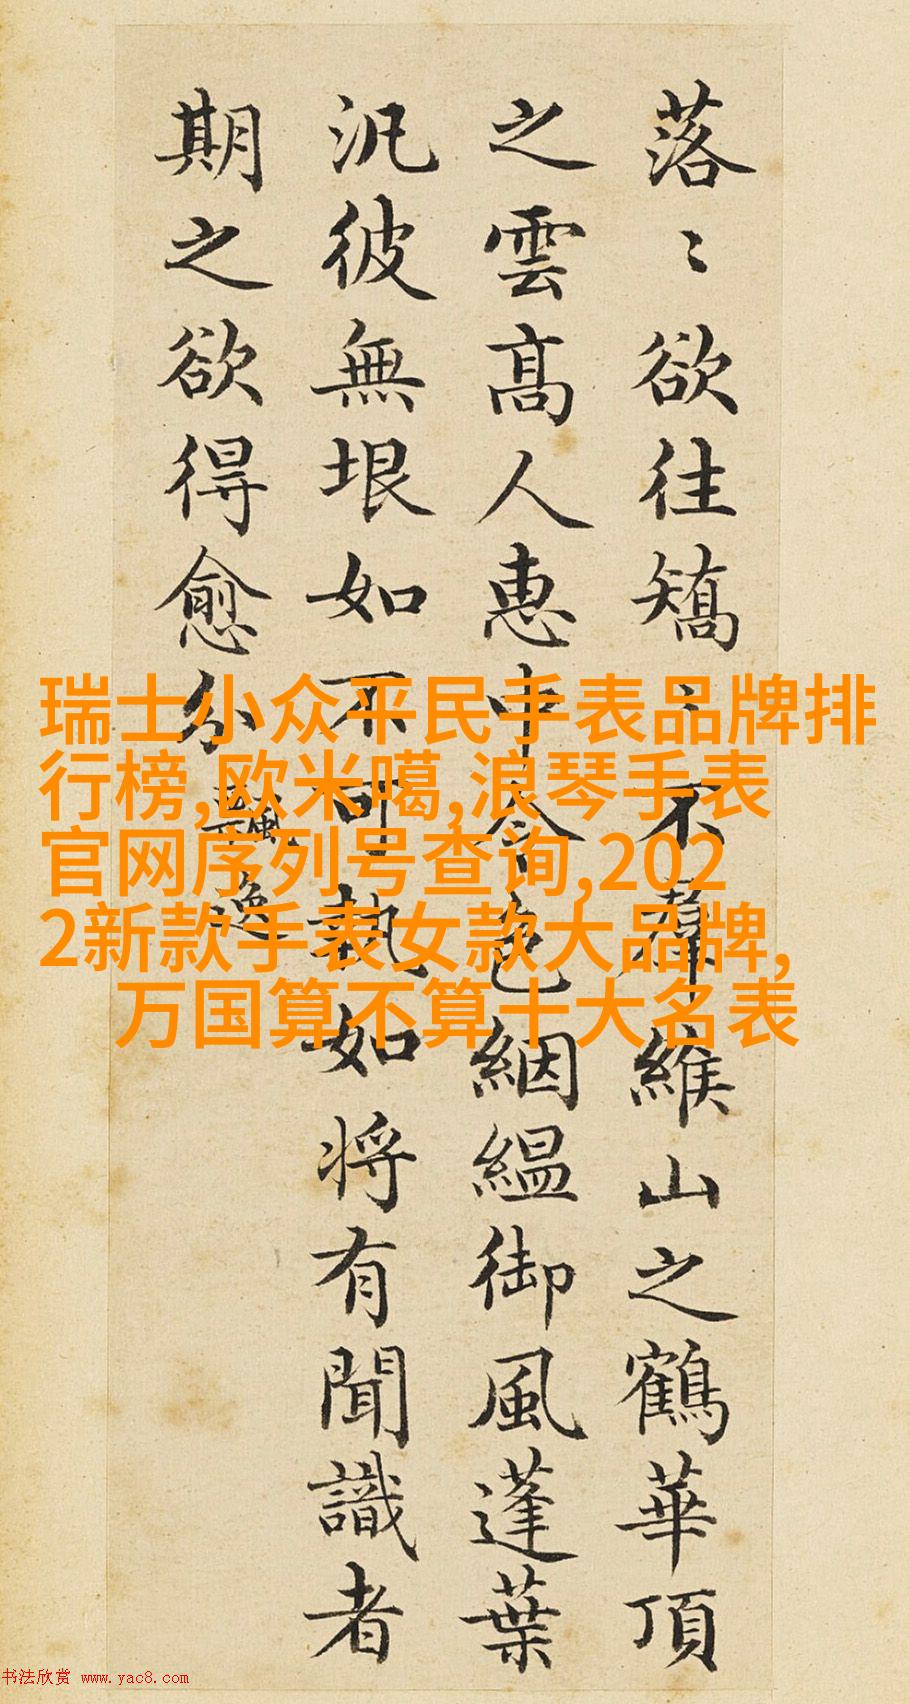 落〻欲往矯〻不羣緱山之鶴華頂
之雲髙人惠中令色絪縕御風蓬葉
汎彼無垠如不可執如将有聞識者
期之欲得愈分 飄逸
瑞士小众平民手表品牌排
行榜,欧米噶,浪琴手表
官网序列号查询,202
2新款手表女款大品牌,
万国算不算十大名表
书法欣赏 www.yac8.com